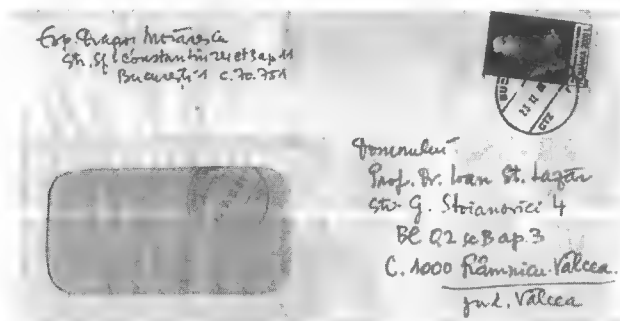 Exp. Dragoș Morărescu
Str. Sf. Constantin 24 et 3 ap 11
București 1 C. 70.751
Domnului
Prof. Dr. Ioan St. Lazăr
Str. G. Stoianovici 4
Bl Q2 sc B ap. 3
C. 1000 Râmnicu-Vâlcea
jud. Vâlcea